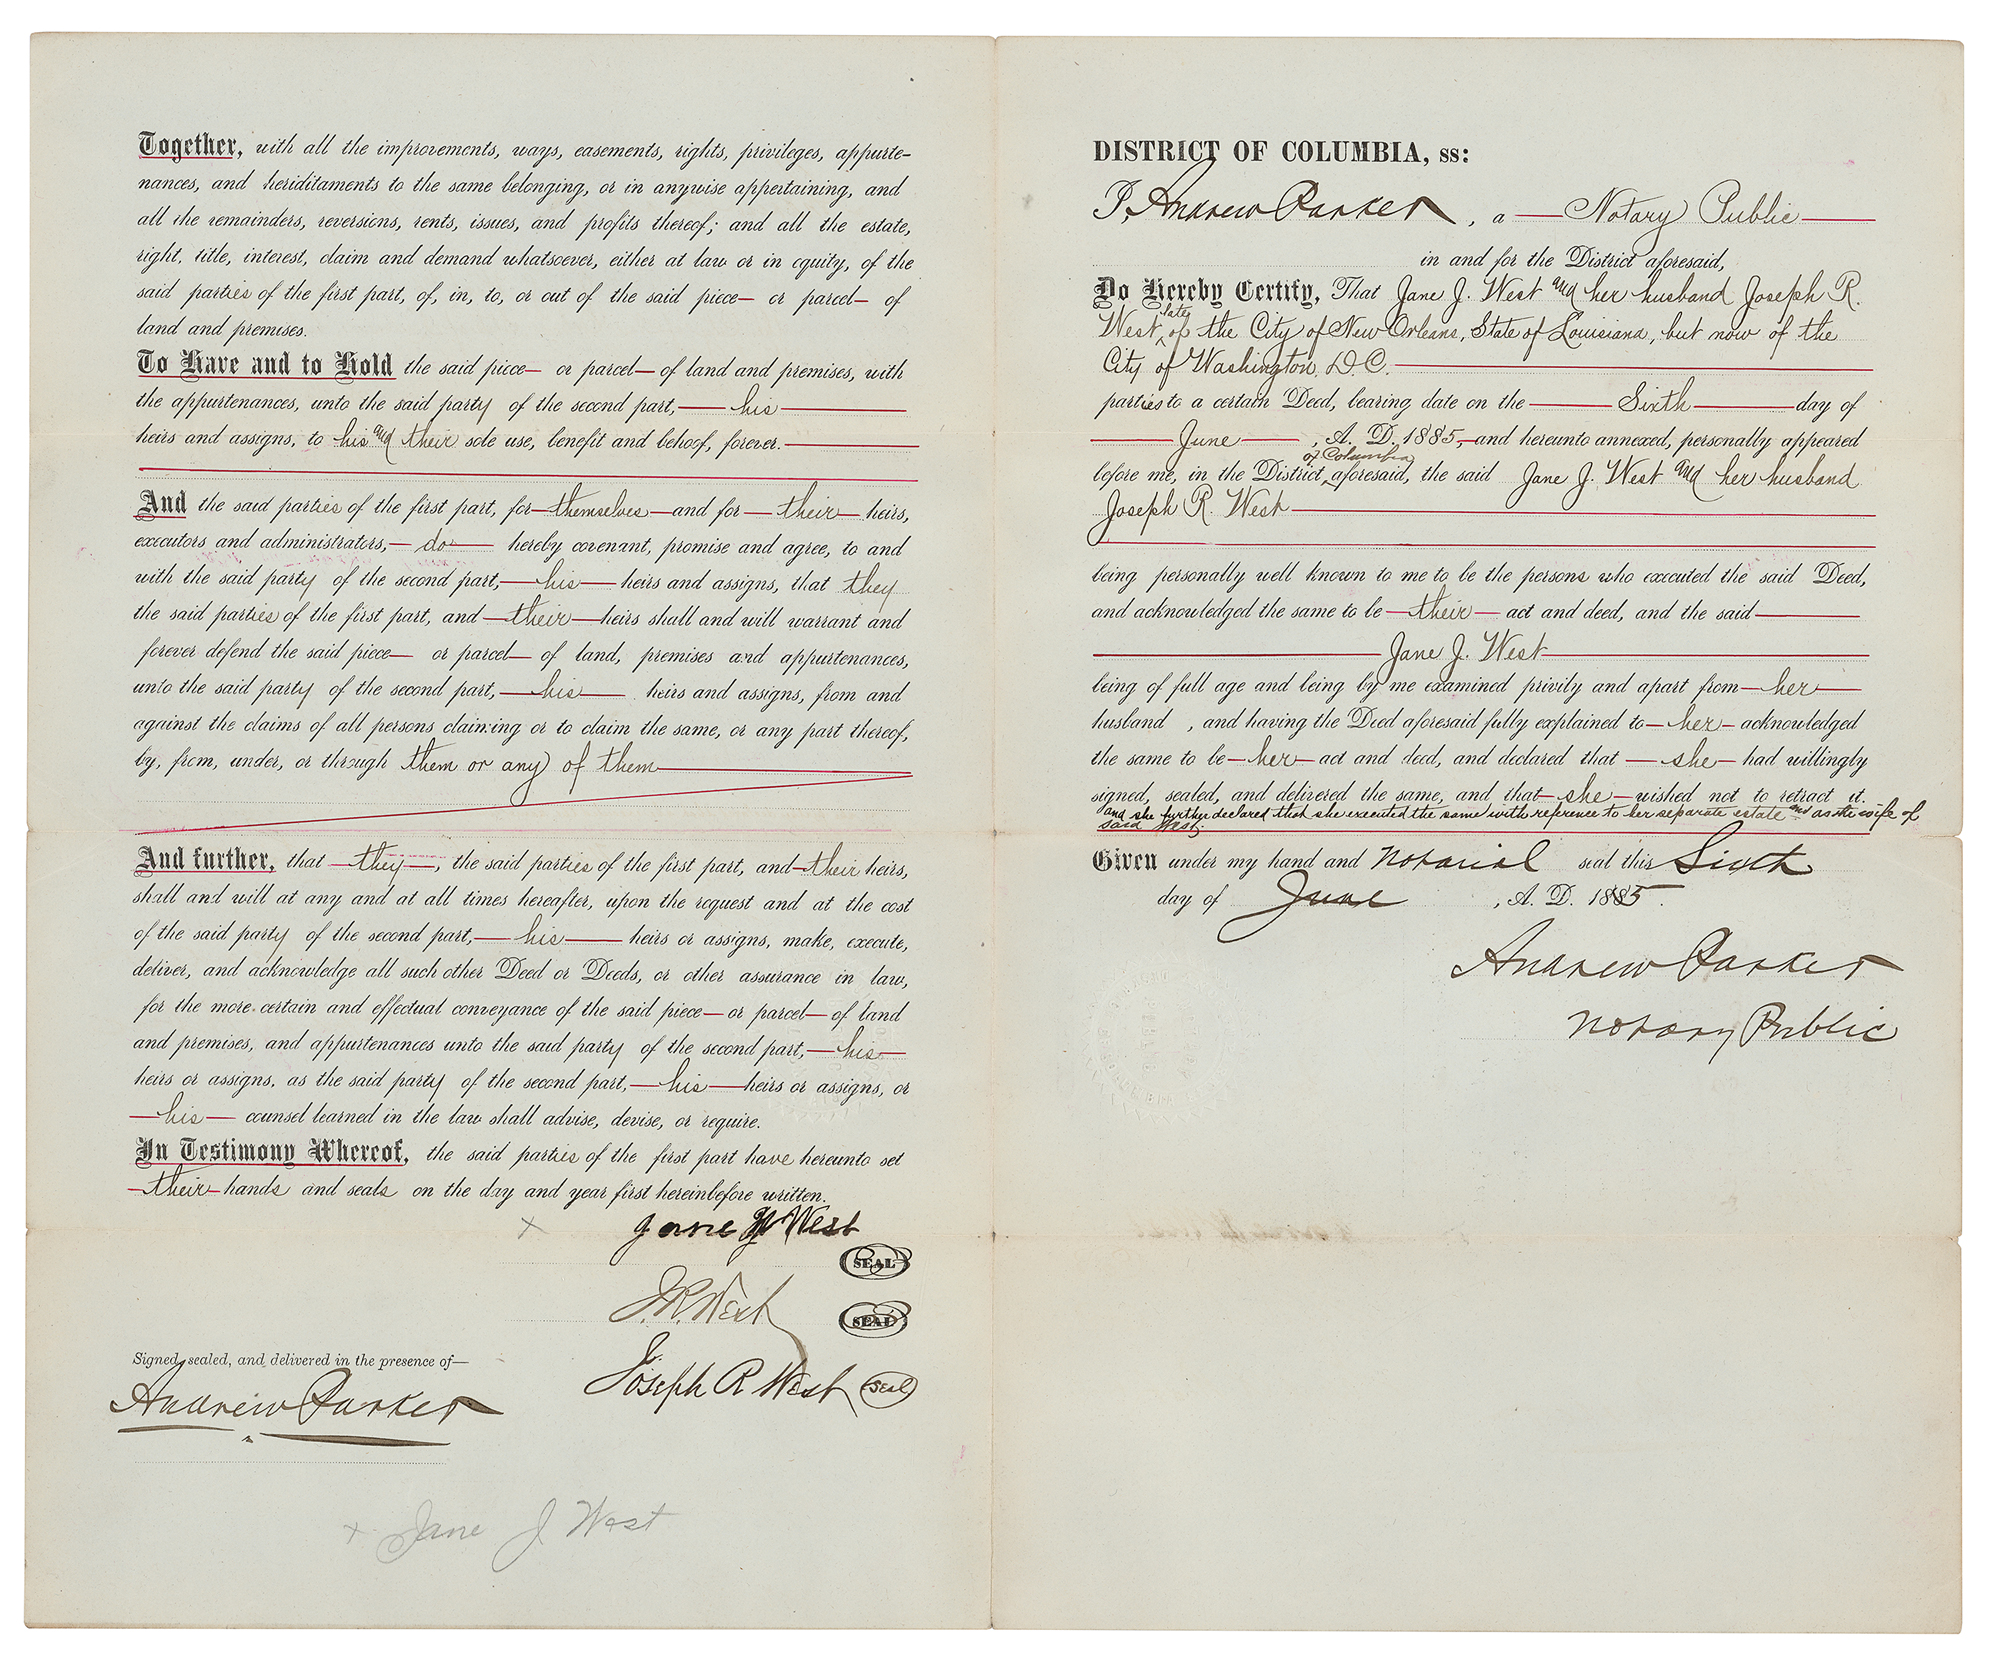 Together, with all the improvements, ways, easements, rights, privileges, appurte-
nances, and heriditaments to the same belonging, or in anywise appertaining, and
all the remainders, reversions, rents, issues, and profits thereof; and all the estate,
right, title, interest, claim and demand whatsoever, either at law or in equity, of the
said parties of the first part, of, in, to, or out of the said piece— or parcel— of
land and premises.
To Have and to Hold the said piece— or parcel— of land and premises, with
the appurtenances, unto the said party of the second part, — his —
heirs and assigns, to his and their sole use, benefit and behoof, forever. —
And the said parties of the first part, for — themselves — and for — their — heirs,
executors and administrators, — do — hereby covenant, promise and agree, to and
with the said party of the second part, — his — heirs and assigns, that they
the said parties of the first part, and — their — heirs shall and will warrant and
forever defend the said piece— or parcel— of land, premises and appurtenances,
unto the said party of the second part, — his — heirs and assigns, from and
against the claims of all persons claiming or to claim the same, or any part thereof,
by, from, under, or through them or any of them —
And further, that — they —, the said parties of the first part, and — their heirs,
shall and will at any and at all times hereafter, upon the request and at the cost
of the said party of the second part, — his — heirs or assigns, make, execute,
deliver, and acknowledge all such other Deed or Deeds, or other assurance in law,
for the more certain and effectual conveyance of the said piece— or parcel— of land
and premises, and appurtenances unto the said party of the second part, — his —
heirs or assigns, as the said party of the second part, — his — heirs or assigns, or
— his — counsel learned in the law shall advise, devise, or require.
In Testimony Whereof, the said parties of the first part have hereunto set
— their — hands and seals on the day and year first hereinbefore written.
x Jane J West
SEAL
J. R. West SEAL
Signed, sealed, and delivered in the presence of—
Joseph R West Seal
Andrew Parker
x Jane J West
DISTRICT OF COLUMBIA, ss:
I, Andrew Parker, a — Notary Public —
in and for the District aforesaid,
Do Hereby Certify, That Jane J. West and her husband Joseph R.
West, late of the City of New Orleans, State of Louisiana, but now of the
City of Washington, D.C. —
parties to a certain Deed, bearing date on the — Sixth — day of
— June —, A. D. 1885, — and hereunto annexed, personally appeared
of Columbia
before me, in the District aforesaid, the said Jane J. West and her husband
Joseph R. West —
being personally well known to me to be the persons who executed the said Deed,
and acknowledged the same to be — their — act and deed, and the said —
— Jane J. West —
being of full age and being by me examined privily and apart from — her —
husband , and having the Deed aforesaid fully explained to — her — acknowledged
the same to be — her — act and deed, and declared that — she — had willingly
signed, sealed, and delivered the same, and that — she — wished not to retract it.
and she further declared that she executed the same with reference to her separate estate and as the wife of
said West;
Given under my hand and Notarial seal this Sixth
day of June , A. D. 1885.
Andrew Parker
Notary Public